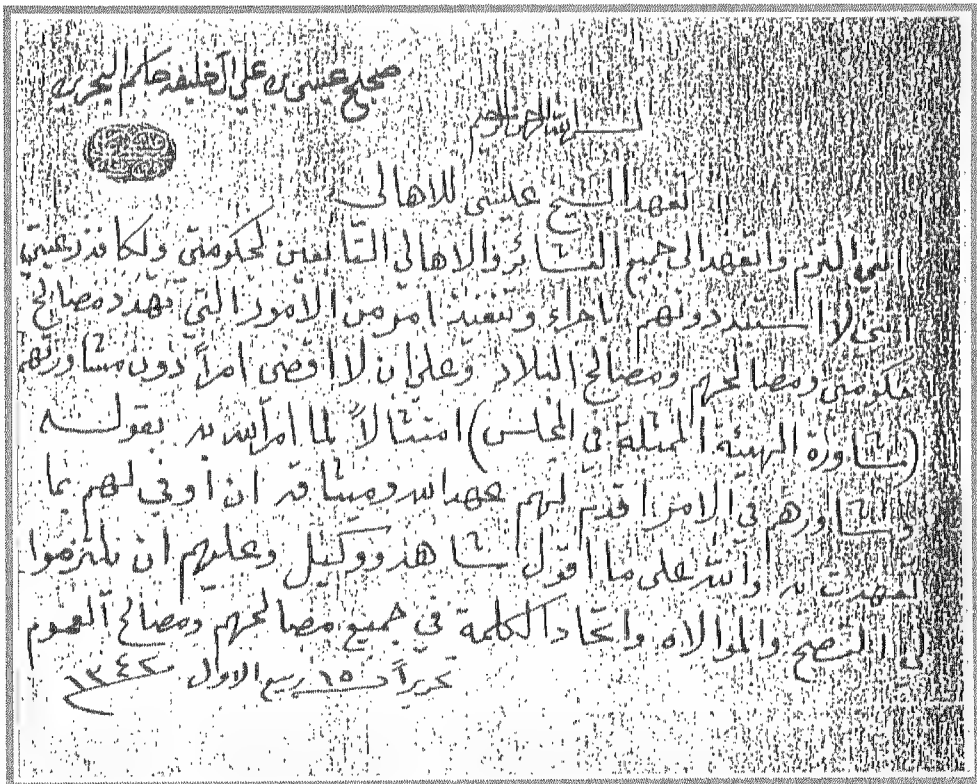 صحيح عيسى بن علي آل خليفه حاكم البحرين
بسم الله الرحمن الرحيم
تعهد الشيخ عيسى للاهالي
انني التزم واتعهد الى جميع العشائر والاهالي التابعين لحكومتي ولكافة رعيتي
انني لا استبد دونهم باجراء وتنفيذ امر من الامور التي تهدد مصالح
حكومتي ومصالحهم ومصالح البلاد وعلي ان لا اقضي امراً دون مشاورتهم
(مشاورة الهيئة الممثلة في المجلس) امتثالاً لما امر الله به بقوله
وشاورهم في الامر اقدم لهم عهد الله وميثاقه ان اوفي لهم بما
تعهدت به والله على ما اقول شاهد ووكيل وعليهم ان يلتزموا
لي النصح والموالاه واتحاد الكلمة في جميع مصالحهم ومصالح العموم
تحريراً في ١٥ ربيع الاول ١٣٤٢